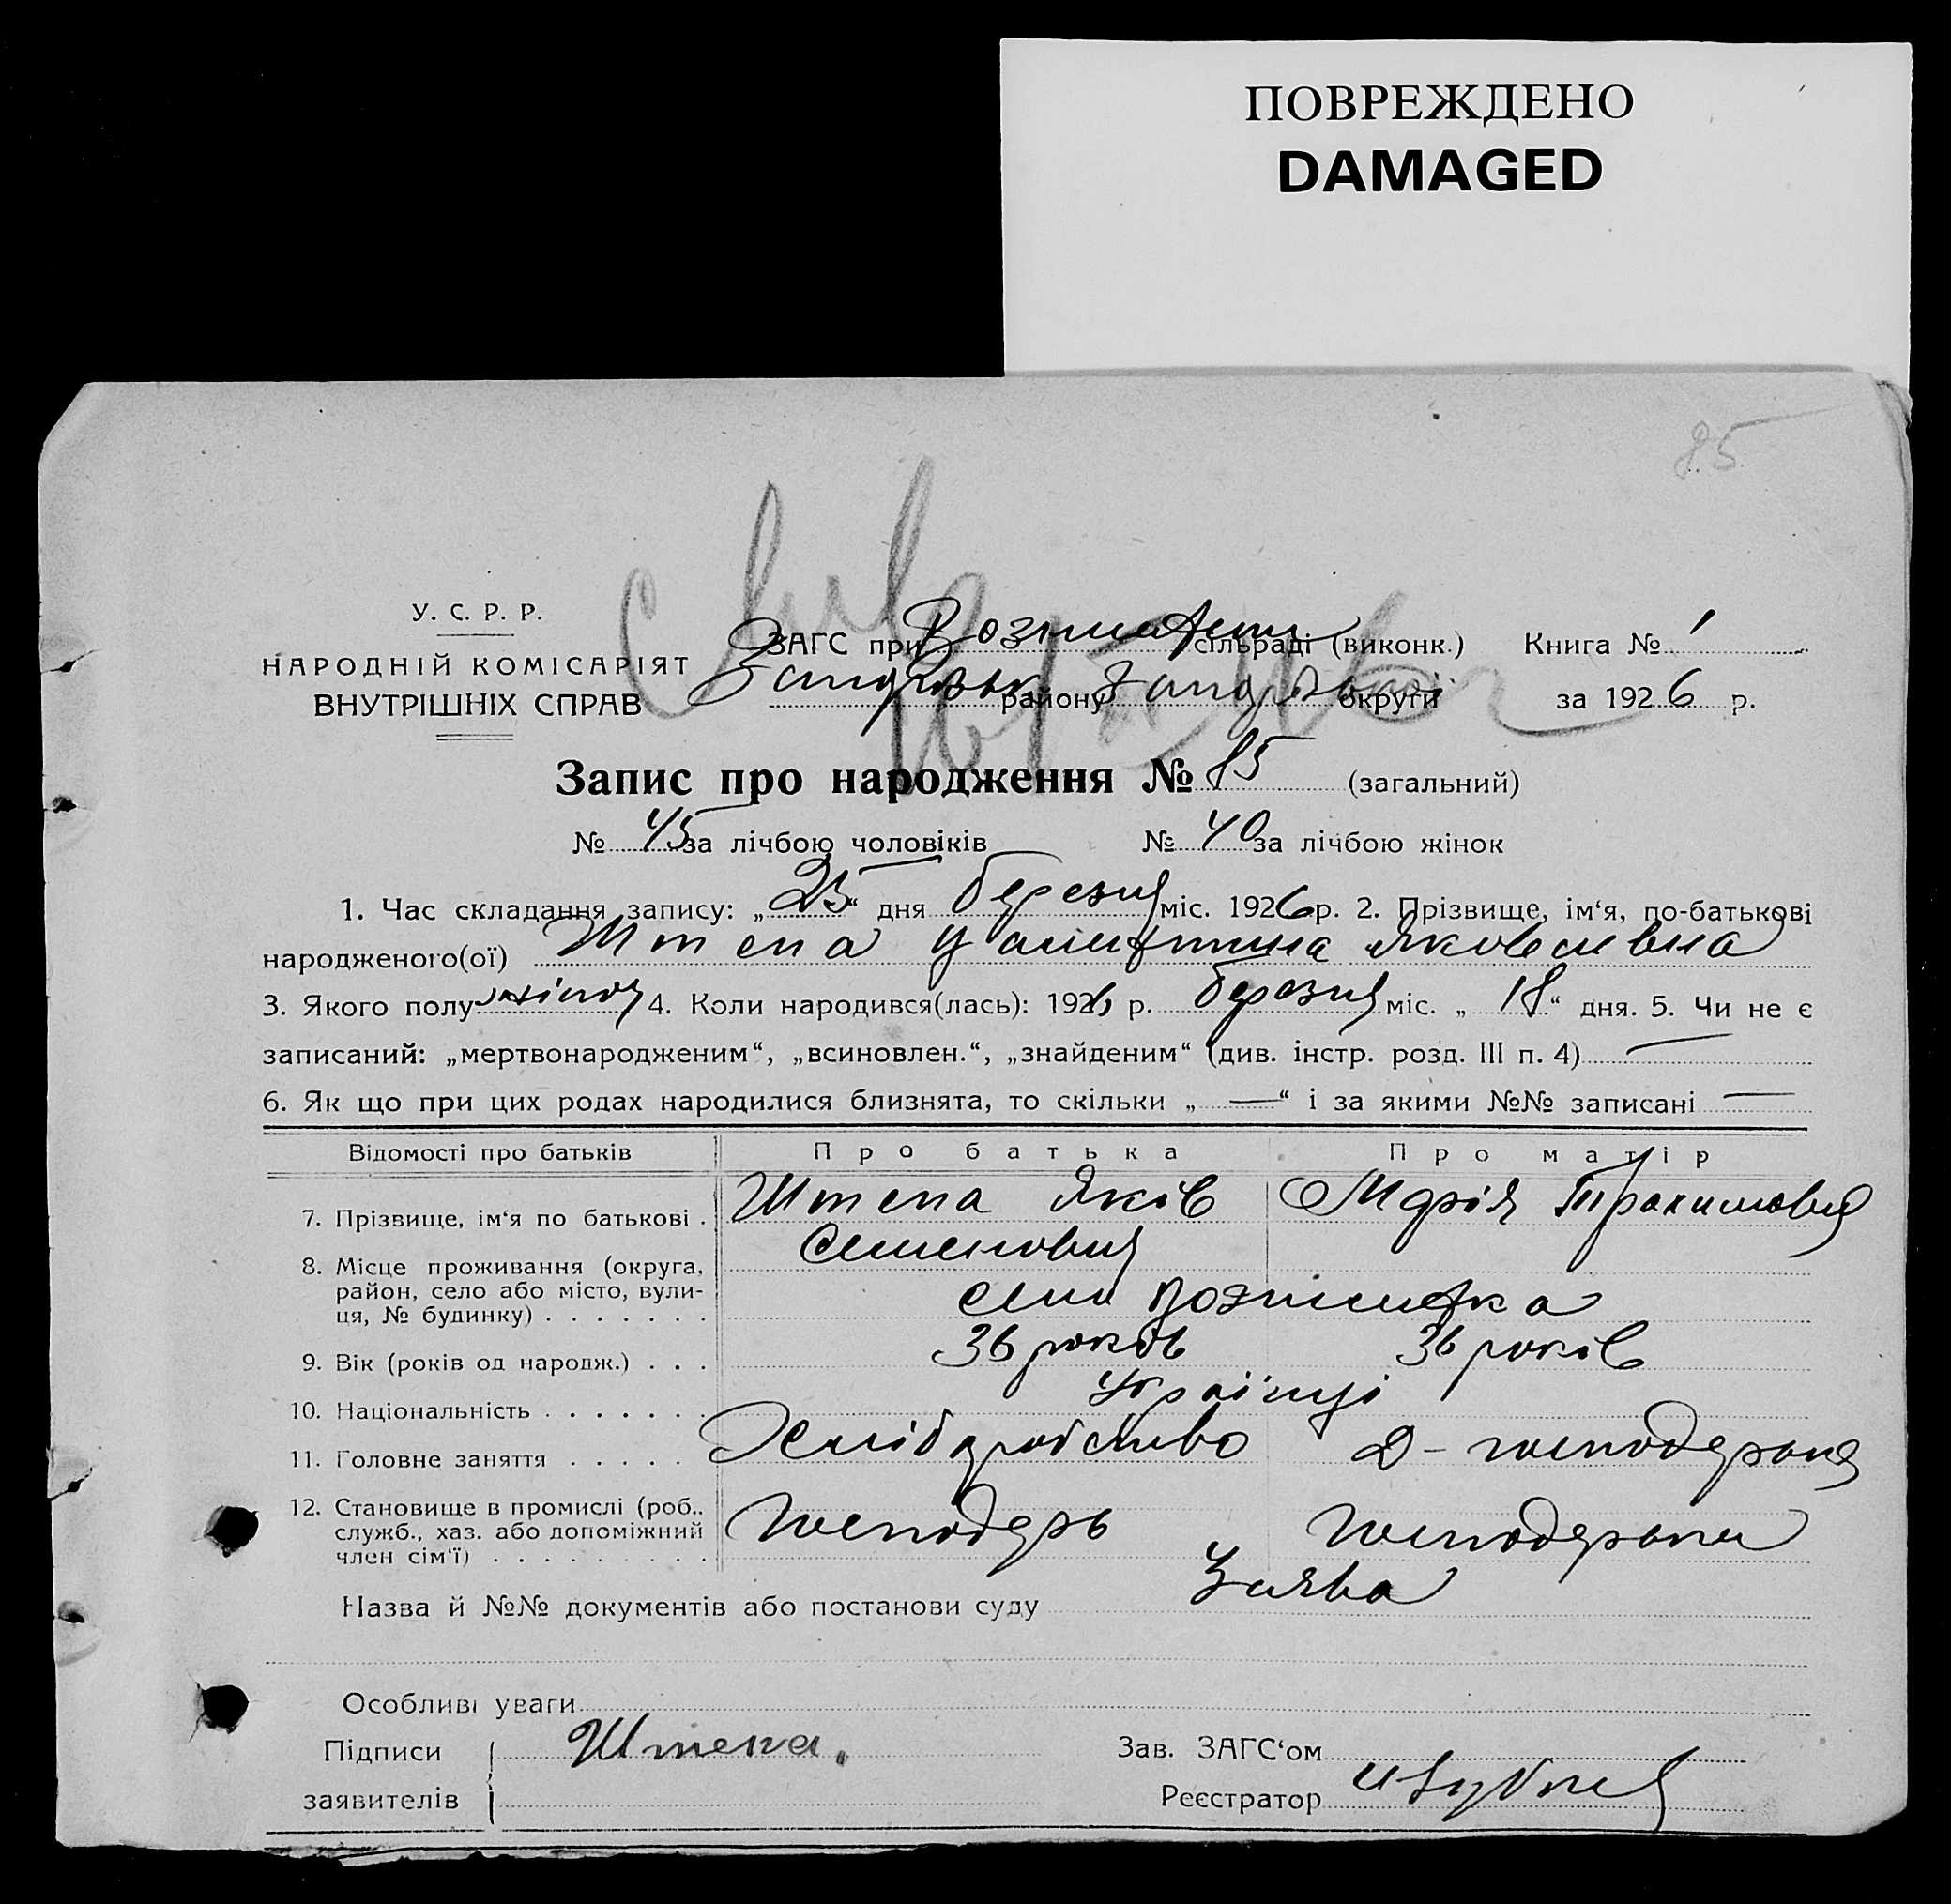 ПОВРЕЖДЕНО
DAMAGED
85
У. С. Р. Р.
НАРОДНІЙ КОМІСАРІЯТ
ВНУТРІШНІХ СПРАВ
ЗАГС при сільраді (виконк.) Книга № 1
району округи за 1926 р.
Запис про народження № 85 (загальний)
№ 45 за лічбою чоловіків № 40 за лічбою жінок
1. Час складання запису: „25“ дня березня міс. 1926 р. 2. Прізвище, ім‘я, по-батькові
народженого(ої) Штепа Яковлівна
3. Якого полу жіноч 4. Коли народився(лась): 1926 р. березня міс. „18“ дня. 5. Чи не є
записаний: „мертвонародженим“, „всиновлен.“, „знайденим“ (див. інстр. розд. III п. 4) —
6. Як що при цих родах народилися близнята, то скільки „—“ і за якими №№ записані —
Відомості про батьків Про батька Про матір
7. Прізвище, ім‘я по батькові . Штепа Яків Марія Трохимовна
Семенович
8. Місце проживання (округа,
район, село або місто, вули-
ця, № будинку) . . . . . . . село
9. Вік (років од народж.) . . . 36 років 36 років
10. Національність . . . . . . . Українці
11. Головне заняття . . . . . Хліборобство Д-господарка
12. Становище в промислі (роб.,
служб., хаз. або допоміжний
член сім‘ї) . . . . . . . . . Господарь Господарка
Назва й №№ документів або постанови суду Заява
Особливі уваги
Підписи Штепа. Зав. ЗАГС‘ом
заявителів Реєстратор